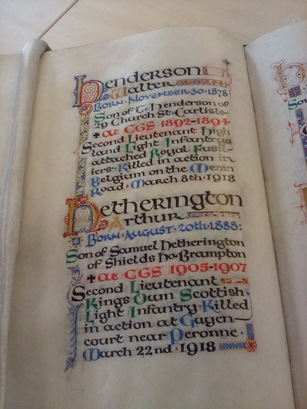 Henderson
Walter
Born·November·30·1878
Son of T·Henderson of
29 Church St·Carlisle
+at CGS 1892-1894
Second Lieutenant High
land Light Infantry
attached Royal Fusil-
iers·Killed in action in
Belgium on the Menin
Road·March 8th·1918
Hetherington
Arthur
Born·August·20th·1888:
Son of Samuel Hetherington
of Shields Ho·Brampton
+at CGS 1905-1907
Second Lieutenant
Kings Own Scottish
Light Infantry·Killed
in action at Guyen-
court near Peronne·
March 22nd·1918